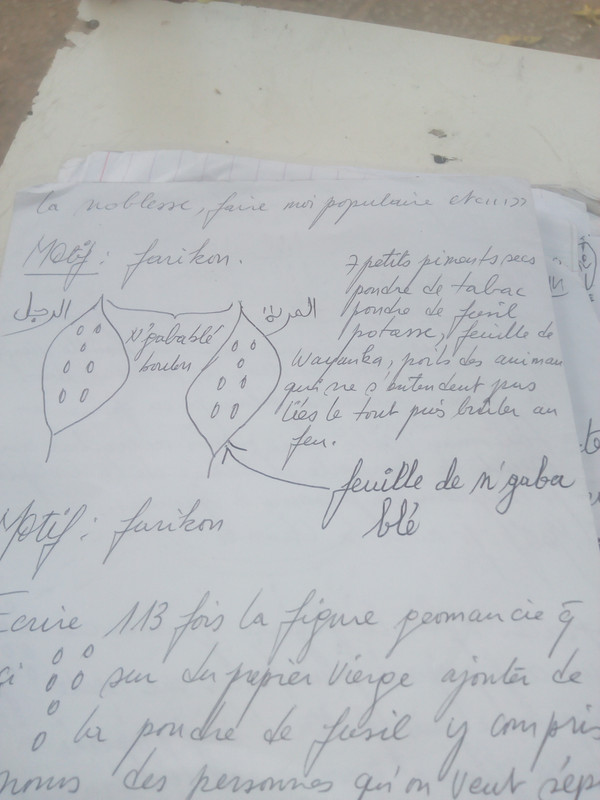 la noblesse, faire moi populaire etc...>>
Motif: farikon.
7 petits piments secs
poudre de tabac
poudre de fusil
potasse, feuille de
Wayanka, poils des animau
qui ne s'entendent pas
liés le tout puis brûler au
feu.
الرجل
N'gabablé
boulou
المرأة
feuille de n'gaba
blé
Motif: farikon
Ecrire 113 fois la figure geomancie q
ci sur du papier vierge ajouter de
la poudre de fusil y compris
noms des personnes qu'on veut sép